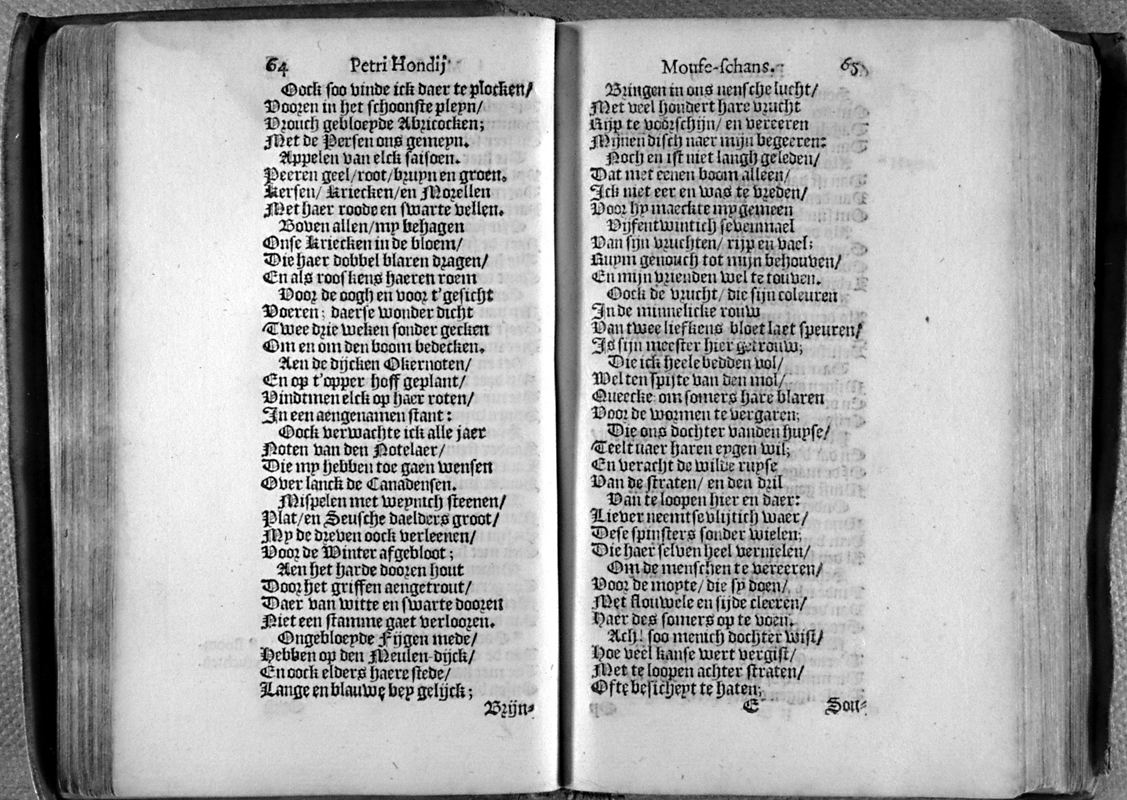 64 Petri Hondij
Oock soo vinde ick daer te plocken/
Vooren in het schoonste pleyn/
Vrouch gebloeyde Abricocken;
Met de Persen ons gemeyn.
Appelen van elck saisoen.
Peeren geel/root/bruyn en groen.
Kersen/ Kriecken/en Morellen
Met haer roode en swarte vellen.
Boven allen/my behagen
Onse Kriecken in de bloem/
Die haer dobbel blaren dragen/
En als rooskens haeren roem
Voor de oogh en voor t'gesicht
Voeren; daerse wonder dicht
Twee drie weken sonder gecken
Om en om den boom bedecken.
Aen de dijcken Okernoten/
En op t'opper hoff geplant/
Vindtmen elck op haer roten/
In een aengenamen stant:
Oock verwachte ick alle jaer
Noten van den Notelaer/
Die my hebben toe gaen wensen
Over lanck de Canadensen.
Mispelen met weynich steenen/
Plat/en Seusche daelders groot/
My de dreven oock verleenen/
Voor de Winter afgebloot;
Aen het harde dooren hout
Door het griffen aengetrout/
Daer van witte en swarte dooren
Niet een stamme gaet verlooren.
Ongebloeyde Fijgen mede/
Hebben op den Meulen-dijck/
En oock elders haere stede/
Lange en blauwe bey gelijck;
Brijn-
Moufe-schans. 65
Bringen in ons nensche lucht/
Met veel hondert hare vrucht
Rijp te voorschijn/ en vereeren
Mijnen disch naer mijn begeeren:
Noch en ist niet langh geleden/
Dat met eenen boom alleen/
Ick niet eer en was te vreden/
Voor hy maeckte my gemeen
Vijfentwintich sevenmael
Van sijn vruchten/ rijp en vael;
Ruym genouch tot mijn behouven/
En mijn vrienden wel te touven.
Oock de vrucht/ die sijn coleuren
In de minnelicke rouw
Van twee liefkens bloet laet speuren/
Is sijn meester hier getrouw;
Die ick heele bedden vol/
Wel ten spijte van den mol/
Queecke: om somers hare blaren
Voor de wormen te vergaren;
Die ons dochter vanden huyse/
Teelt naer haren eygen wil;
En veracht de wilde ruyse
Van de straten/ en den dril
Van te loopen hier en daer:
Liever neemtse vlijtich waer/
Dese spinsters sonder wielen;
Die haer selven heel vernielen/
Om de menschen te vereeren/
Voor de moyte/ die sy doen/
Met flouwele en sijde cleeren/
Haer des somers op te voen.
Ach! soo menich dochter wist/
Hoe veel kanse wert vergist/
Met te loopen achter straten/
Ofte besicheyt te haten;
E Son-